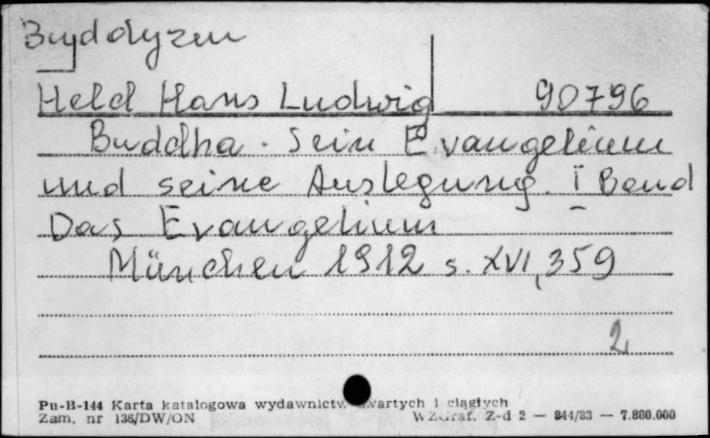 Buddyzm
Held Hans Ludwig 90796
Buddha. Sein Evangelium
und seine Auslegung. I Band
Das Evangelium
München 1912 s. XVI, 359
2
Pu-B-144 Karta katalogowa wydawnictw zwartych i ciągłych
Zam. nr 136/DW/ON WZGraf. Z-d 2 — 844/83 — 7.880.000